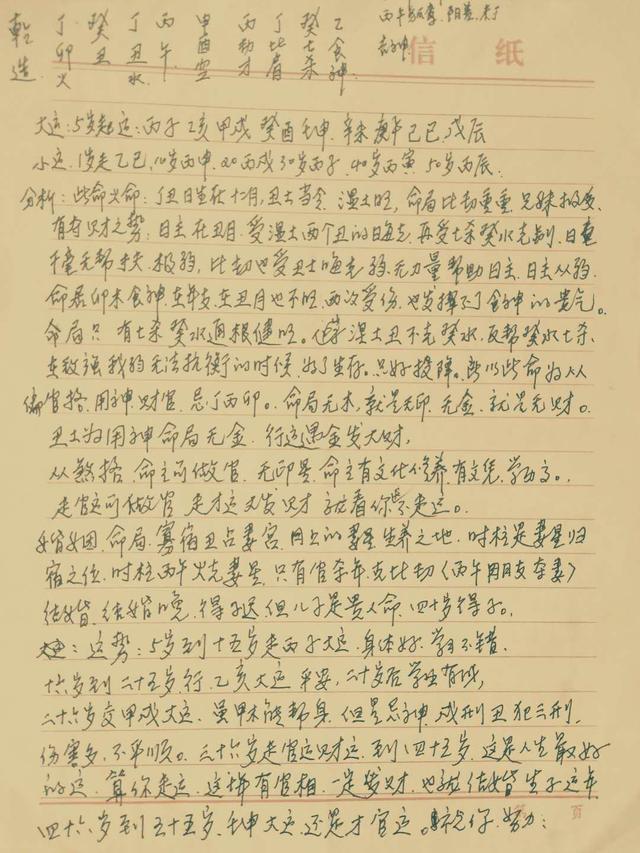 乾 丁 癸 丁 丙 甲 丙 丁 癸 乙
卯 丑 丑 午 酉 劫 比 七 食
造 火 水 空 才 肩 杀 神
信 纸
大运:5岁起运:丙子 乙亥 甲戌 癸酉 壬申 辛未 庚午 己巳 戊辰
小运 1岁走乙巳,10岁丙申 20丙戌 30岁丙子 40岁丙寅 50岁丙辰
分析:此命火命:丁丑日生在十二月,丑土当令 湿土旺,命局比劫重重 兄妹
有夺财之势:日主在丑月 受湿土两个丑的晦克 再受七杀癸水克制 日主
无帮扶 极弱,比劫也受丑土晦克 弱 无力量帮助日主 日主从弱
命居卯木食神 在年支 在丑月也不旺 两次受伤 也发挥不了食神的贵气。
命局只有七杀 癸水通根健旺。湿土丑不克癸水 反帮癸水七杀、
在敌强我弱无法抗衡的时候 为了生存。只好投降。所以此命为从
偏官格 用神财官 忌丁丙卯。命局无木,就是无印 无金 就是无财。
丑土为用神 命局无金 行运遇金发大财,
从煞格 命主可做官 无印星 命主有文化修养 有文凭 学功高。
走官运可做官 走才运大发财 就看你怎么走运。
婚姻 命局 寡宿丑占妻宫 月上的妻星生养之地 时柱是妻星归
宿之位 时柱丙午火克妻星 只有官杀年 克比劫(丙午朋友夺妻)
结婚 结婚晚 得子迟 但儿子是贵人命 四十岁得子。
运势:5岁到十五岁走丙子大运 身体好 学习不错
十六岁到二十五岁行乙亥大运 平安,二十岁后学业有成,
二十六岁交甲戌大运 虽甲木能帮身 但是忌神 戌刑丑犯三刑,
伤害多 不平顺。三十六岁走官运财运 到四十五岁 这是人生最好
的运 算你走运 这样有官相 一定发财 也能结婚生子 这年
四十六岁到五十五岁 壬申大运 还是才官运。努力:
页